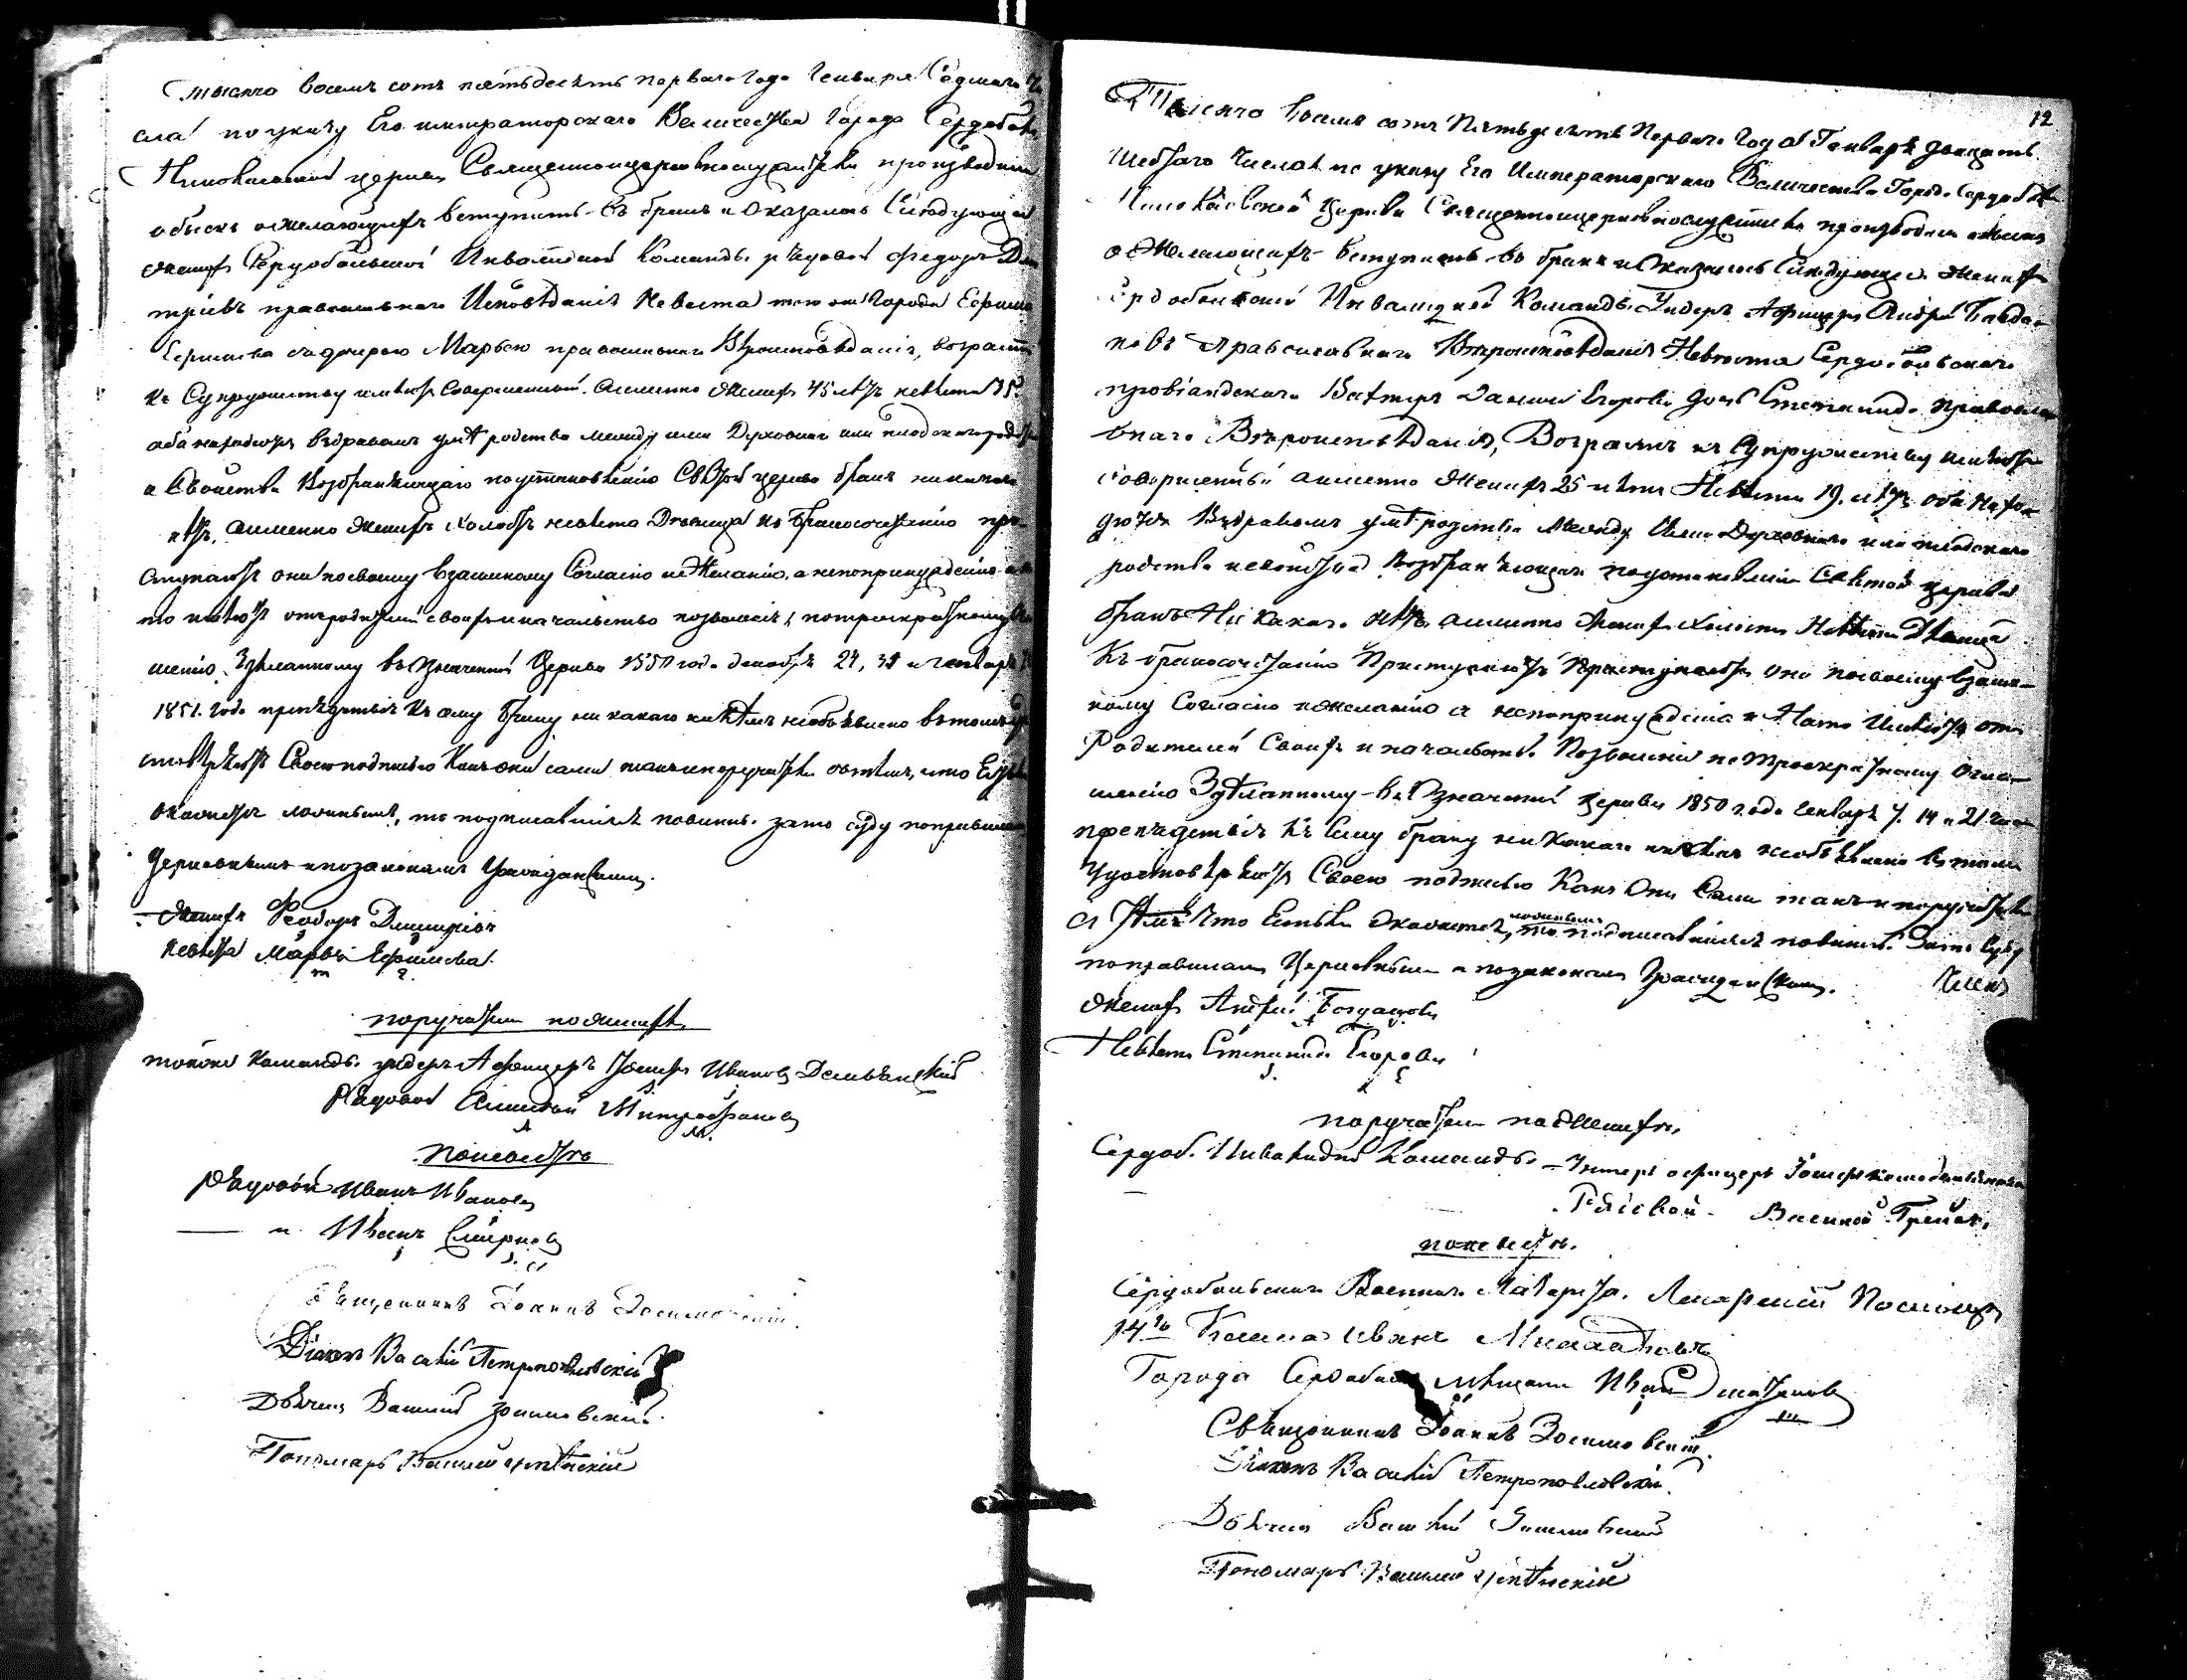 тысяча восемь сотъ пятьдесятъ перваго года Генваря Седмаго Чи
сла по указу Его императорскаго Величества Города Сердоболя
Николаевской церкви Священноцерковнослужители производили
обыскъ о желающихъ вступить въ бракъ и оказалось Следующее
женихъ Сердобольской Инвалидной Команды рядовой Федоръ Дми
тріевъ православнаго Исповѣданія Невѣста того же города Ефима
дочерью Марьею православнаго Вѣроисповѣданія, возрастъ
къ Супружеству имѣютъ Совершенный. Аименно Женихъ 45 лѣтъ невѣста 35.
оба находятся въздравомъ умѣ родства между ими Духовнаго или плодскаго родства
и Свойства Возбраняющаго поустановленію Святой церкви бракъ никакого
нѣтъ, Аименно женихъ холостъ невѣста Дѣвица къ бракосочетанію при
ступаютъ они посвоему взаимному Согласію и Желанію, а непопринужденію и на
то имѣютъ отъродителей своихъ и начальства позволеніе, потроекратному огла
шенію Здѣланному въ Означенной Церкви 1850 года декабря 24, 31 и генваря
1851. года препядствія Къ сему браку ни какаго никѣмъ необъявлено въ томъ
Своею подписью Какъ они сами такъ и поручители стѣмъ, что Естьли
окажется ложнымъ, то подписавшіеся повинны зато суду поправиламъ
Церковнымъ и позаконамъ Гражданскимъ.
Женихъ Феодоръ Димитріевъ
невѣста Марья Ефимова.
поручатели пожениху
тойже Команды ундеръ Афицеръ Іосифъ Ивановъ Демьянскій
Рядовой Митрофановъ
Поневѣстѣ
Рядовой Иванъ Ивановъ
— и Иванъ Смирновъ
Священникъ Іоаннъ Зосимовскій.
Діаконъ Василій Петропавловскій
Дьячекъ Василій Зосимовскій
Пономарь Василій
12
Тысяча Восемь сотъ Пятьдесятъ Перваго Года Генваря двацать
Шестаго Числа по указу Его Императорскаго Величества Города Сердоболя
Николаевской Церкви Священноцерковнослужители производили обыскъ
о Желающихъ вступить въ бракъ и Оказалось Следующее Женихъ
Сердобольской Инвалидной Команды Ундеръ Афицеръ Андрей Богда
новъ Православнаго Вѣроисповѣданія Невѣста Сердобольскаго
провіандскаго Вахтера Егорова дочь Степанида Православ
внаго Вѣроисповѣданія, Возрастъ къ Супружеству имѣютъ
совершенный аименно Женихъ 25 лѣтъ Невѣста 19. лѣтъ оба нахо
дятся Въздравомъ умѣ родства Между Ими Духовнаго или плодскаго
родства и свойства Возбраняющаго поустановленію Святой церкви
бракъ Ни какаго нѣтъ, аименно Женихъ холостъ Невѣста Дѣвица
Къ бракосочетанію Приступаютъ Приступаютъ они посвоему взаим
ному Согласію ижеланію а непопринужденію и Нато Имѣютъ отъ
Родителей Своихъ и начальства Позволеніе по Троекратному Огла
шенію Здѣланному въ Означенной церкви 1850 года Генваря 7. 14 и 21 числ
препядствія Къ Сему браку ни Какаго никѣмъ необъявлено въ томъ
Удостовѣряютъ Своею подписью Какъ Они Сами такъ и поручители
съ Тѣмъ Что Естьли Окажется, ложнымъ то подписавшіеся повинны Зато Суду
поправиламъ Церковнымъ и позаконамъ Гражданскимъ.
Женихъ Андрей Богдановъ
Невѣста Степанида Егорова
поручатели поЖениху
Сердоб. Инвалидной Команды — Унтеръ офицеръ Іосифъ
Рядовой Василій
поневѣстѣ.
Сердобольскаго Военнаго Лазарета. Лекарскій Помощн
14го Класса Иванъ
Города Сердоболя мѣщанинъ Иванъ
Священникъ Іоаннъ Зосимовскій.
Діаконъ Василій Петропавловскій
Дьячекъ Василій Зосимовскій
Пономарь Василій